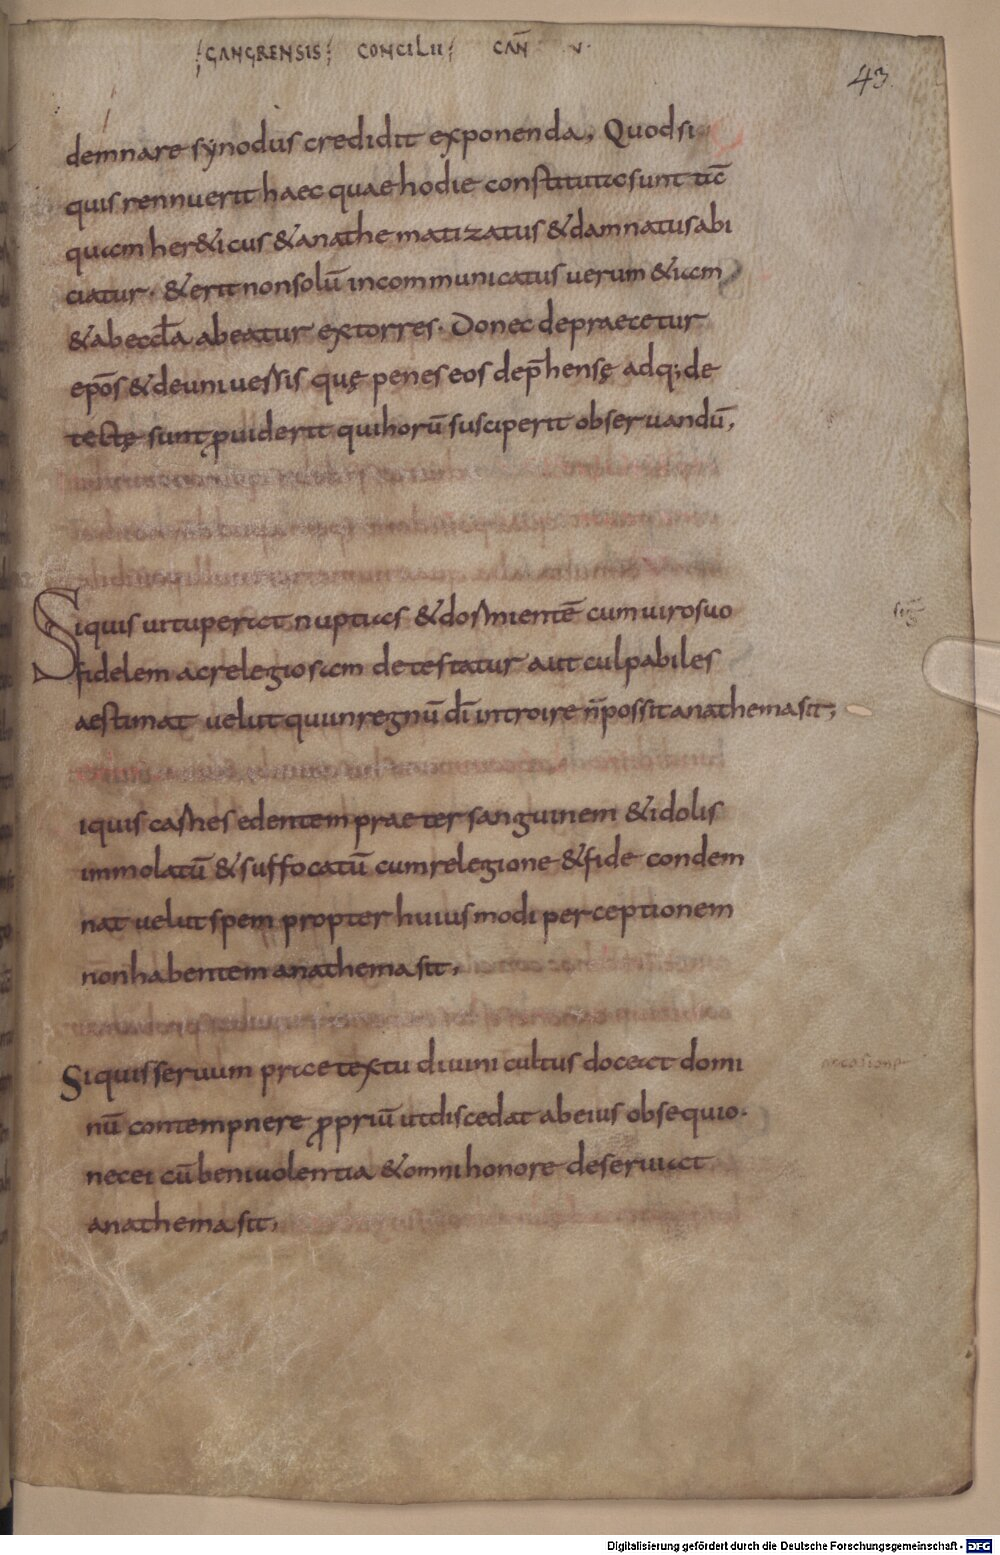 GANGRENSIS CONCILII CAN̄ V.
43
demnare synodus credidit exponenda, Quodsi
quis rennuerit haec quae hodie constituta sunt
quam her&icus &anathematizatus &damnatus abi
ciatur. &erit nonsolū incommunicatus uerum &iam
&abeccła abeatur extorres. Donec depraecetur
ep̄os &deuniuersis quę penes eos dep̄hensę adq;de
tectę sunt puiderit quihorū susciperit obseruandū,
Siquis uituperat nuptias &dormientē cumuirosuo
fidelem acrelegiosam detestatur aut culpabiles
aestimat uelut quiinregnū dī introire n̄possit anathemasit;
iquis carnes edentem praeter sanguinem &idolis
immolatū &suffocatū cumrelegione &fide condem
nat uelut spem propter huiusmodi perceptionem
nonhabentem anathema sit,
Siquis seruum praetextu diuini cultus doceat domi
nū contempnere propriū utdiscedat abeius obsequio.
necei cū beniuolentia &omni honore deseruiat
anathema sit;
Digitalisierung gefördert durch die Deutsche Forschungsgemeinschaft - DFG